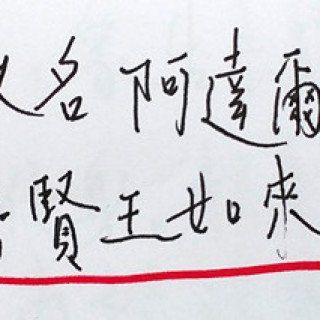 名阿達爾
賢王如來